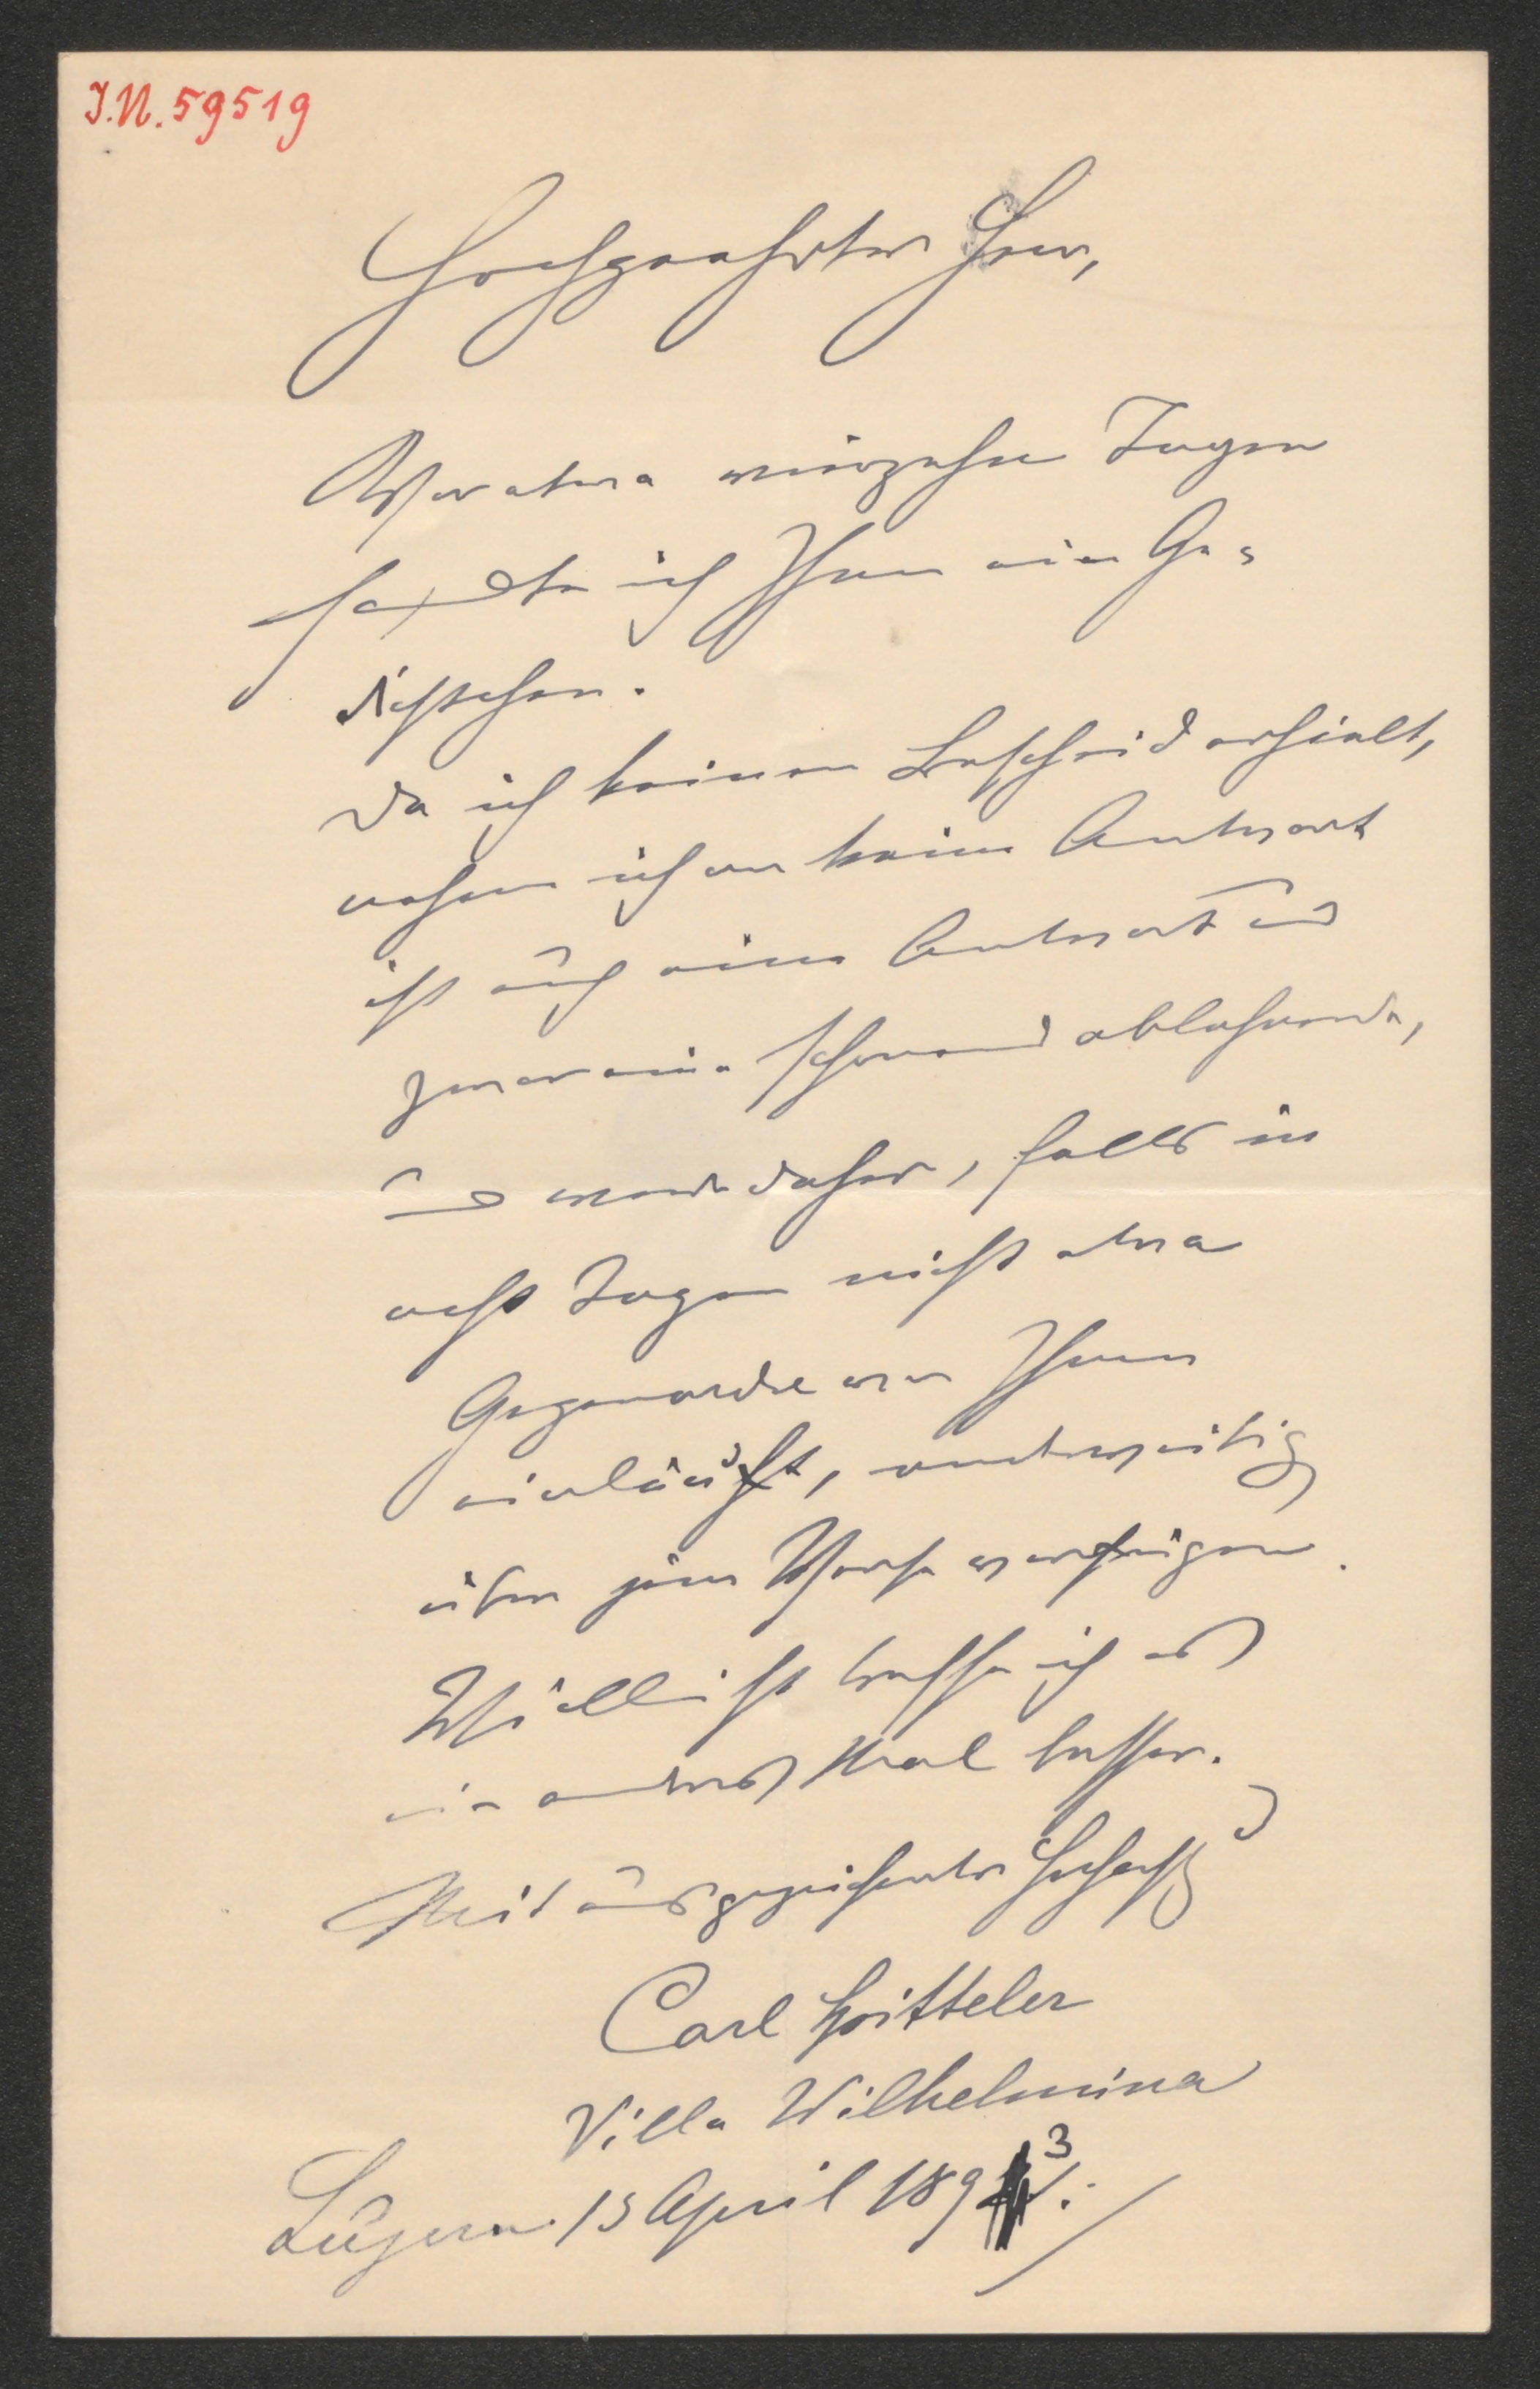 I.N. 59519
Hochgeehrter Herr,
Vor etwa vierzehn Tagen
sandte ich Ihnen ein Ge=
dichtchen.
Da ich keinen Bescheid erhielt,
nehme ich an keine Antwort
ist auch eine Antwort und
zwar eine schonend ablehnende,
und werde daher, falls in
acht Tagen nicht etwa
Gegenordre von Ihnen
einläuft, anderweitig
über jene Verse verfügen.
Vielleicht treffe ich es
ein anderes Mal besser.
Mit ausgezeichneter Hochachtg
Carl Spitteler
Villa Wilhelmina
Luzern 15 April 1893